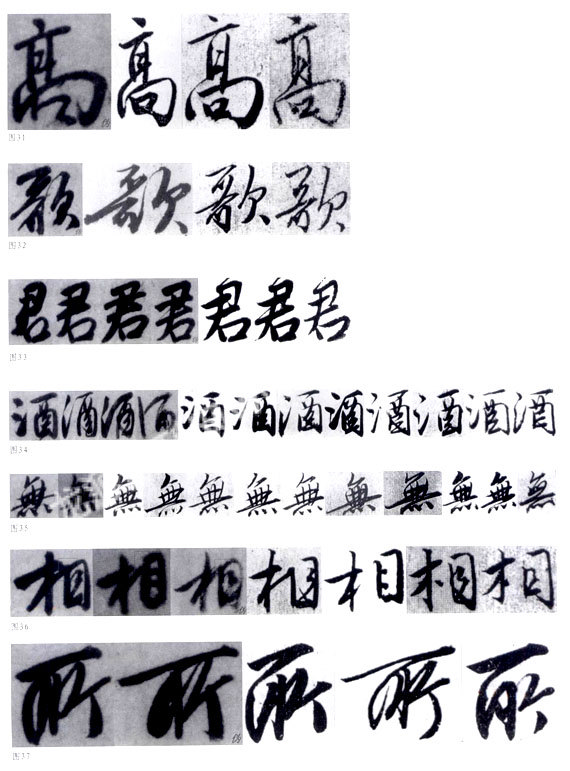 高高高高
图31
歌歌歌歌
图32
君君君君君君君
图33
酒酒酒酒酒酒酒酒酒酒酒酒
图34
無無無無無無無無無無無無
图35
相相相相相相相
图36
所所所所所
图37